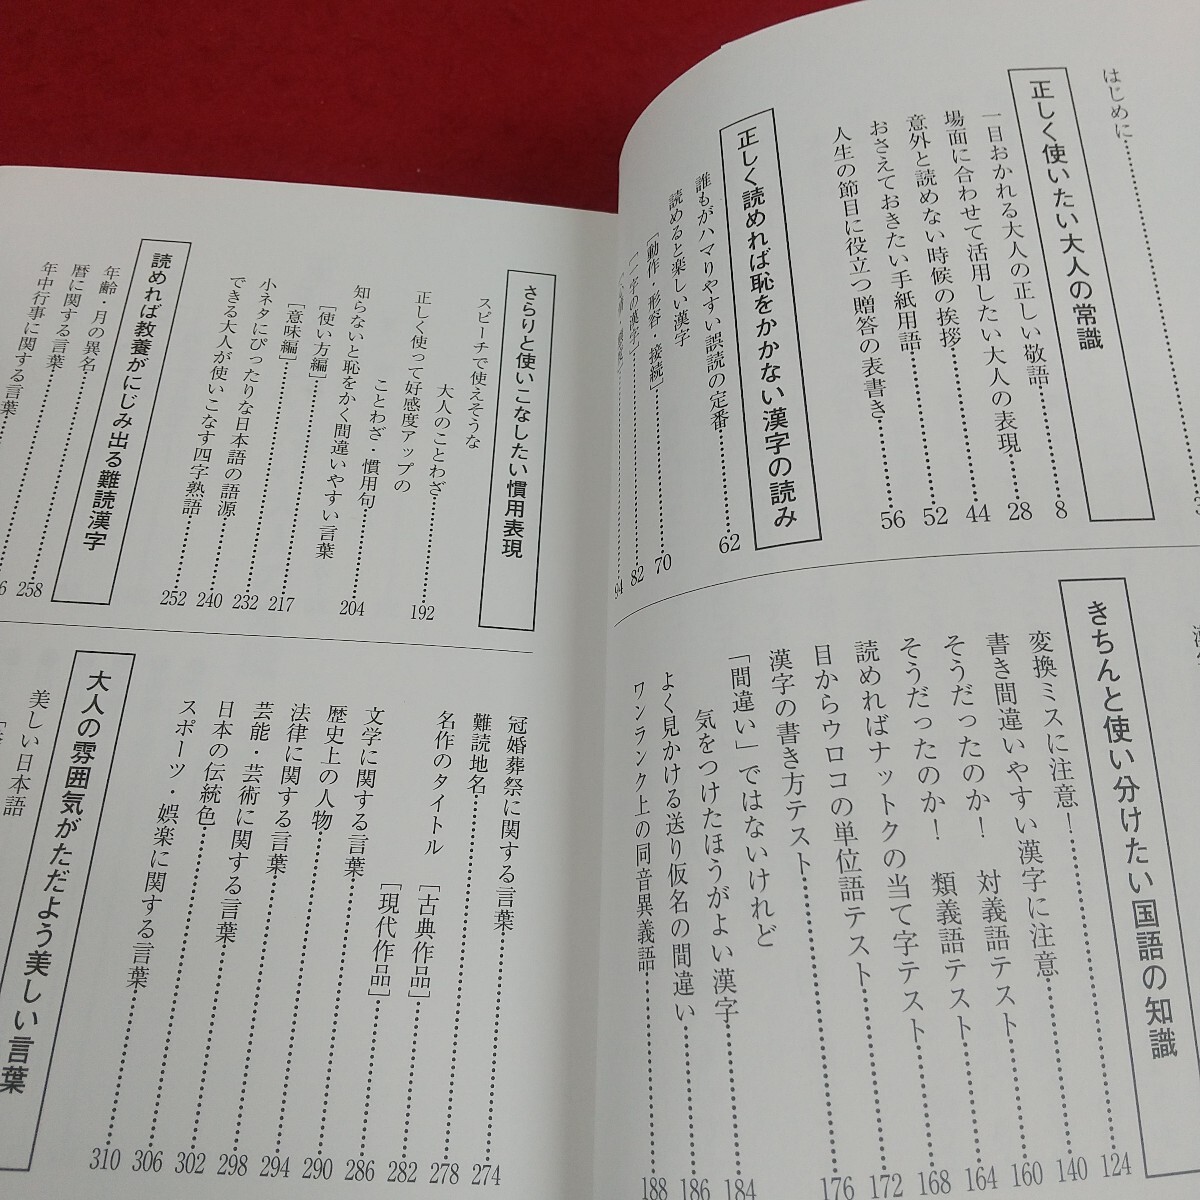 はじめに
正しく使いたい大人の常識
一目おかれる大人の正しい敬語 8
場面に合わせて活用したい大人の表現 28
意外と読めない時候の挨拶 44
おさえておきたい手紙用語 52
人生の節目に役立つ贈答の表書き 56
正しく読めれば恥をかかない漢字の読み
誰もがハマりやすい誤読の定番 62
読めると楽しい漢字
[動作・形容・接続] 70
82
94
きちんと使い分けたい国語の知識
変換ミスに注意! 124
書き間違いやすい漢字に注意 140
そうだったのか! 対義語テスト 160
そうだったのか! 類義語テスト 164
読めればナットクの当て字テスト 168
目からウロコの単位語テスト 172
漢字の書き方テスト 176
「間違い」ではないけれど
気をつけたほうがよい漢字 184
よく見かける送り仮名の間違い 186
ワンランク上の同音異義語 188
さらりと使いこなしたい慣用表現
スピーチで使えそうな
大人のことわざ 192
正しく使って好感度アップの
ことわざ・慣用句 204
知らないと恥をかく間違いやすい言葉
[使い方編] 217
[意味編] 232
小ネタにぴったりな日本語の語源 240
できる大人が使いこなす四字熟語 252
読めれば教養がにじみ出る難読漢字
年齢・月の異名 258
暦に関する言葉
年中行事に関する言葉
冠婚葬祭に関する言葉 274
難読地名 278
名作のタイトル [古典作品] 282
[現代作品] 286
文学に関する言葉 290
歴史上の人物 294
法律に関する言葉 298
芸能・芸術に関する言葉 302
日本の伝統色 306
スポーツ・娯楽に関する言葉 310
大人の雰囲気がただよう美しい言葉
美しい日本語